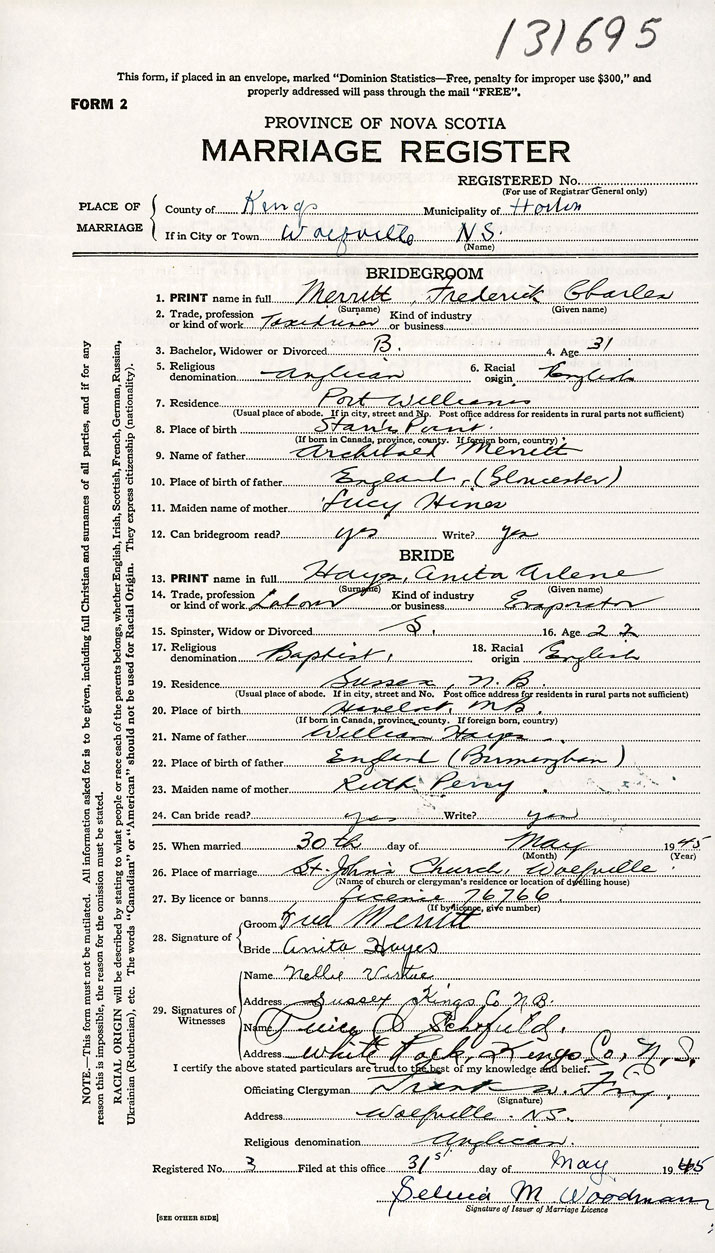 131695
This form, if placed in an envelope, marked "Dominion Statistics—Free, penalty for improper use $300," and
properly addressed will pass through the mail "FREE".
FORM 2
PROVINCE OF NOVA SCOTIA
MARRIAGE REGISTER
REGISTERED No.
(For use of Registrar General only)
PLACE OF MARRIAGE
County of Kings Municipality of Horton
If in City or Town Wolfville N.S.
(Name)
BRIDEGROOM
1. PRINT name in full Merritt, Frederick Charles
(Surname) (Given name)
2. Trade, profession or kind of work Taxidriver Kind of industry or business
3. Bachelor, Widower or Divorced B. 4. Age 31
5. Religious denomination Anglican 6. Racial origin English
7. Residence Port Williams
(Usual place of abode. If in city, street and No. Post office address for residents in rural parts not sufficient)
8. Place of birth Starrs Point.
(If born in Canada, province, county. If foreign born, country)
9. Name of father Archibald Merritt
10. Place of birth of father England, (Gloucester)
11. Maiden name of mother Lucy Hines
12. Can bridegroom read? yes Write? yes
BRIDE
13. PRINT name in full Hayes, Anita Arlene
(Surname) (Given name)
14. Trade, profession or kind of work Labour Kind of industry or business Evaporator
15. Spinster, Widow or Divorced S. 16. Age 22
17. Religious denomination Baptist. 18. Racial origin English
19. Residence Sussex, N.B.
(Usual place of abode. If in city, street and No. Post office address for residents in rural parts not sufficient)
20. Place of birth Havelock, N.B.
(If born in Canada, province, county. If foreign born, country)
21. Name of father William Hayes
22. Place of birth of father England (Birmingham)
23. Maiden name of mother Ruth Perry
24. Can bride read? yes Write? yes
25. When married 30th day of May 1945
(Month) (Year)
26. Place of marriage St. John's Church, Wolfville
(Name of church or clergyman's residence or location of dwelling house)
27. By licence or banns licence 76766
(If by licence, give number)
28. Signature of
Groom Fred Merritt
Bride Anita Hayes
29. Signatures of Witnesses
Name Nellie Virtue
Address Sussex Kings Co N.B.
Name Schofield.
Address White Rock, Kings Co, N.S.
I certify the above stated particulars are true to the best of my knowledge and belief.
Officiating Clergyman Frank W.
(Signature)
Address Wolfville. N.S.
Religious denomination Anglican.
Registered No. 3 Filed at this office 31st day of May 1945
Selina M Woodman
Signature of Issuer of Marriage Licence
[SEE OTHER SIDE]
NOTE.—This form must not be mutilated. All information asked for is to be given, including full Christian and surnames of all parties, and if for any
reason this is impossible, the reason for the omission must be stated.
RACIAL ORIGIN will be described by stating to what people or race each of the parents belongs, whether English, Irish, Scottish, French, German, Russian,
Ukrainian (Ruthenian), etc. The words "Canadian" or "American" should not be used for Racial Origin. They express citizenship (nationality).